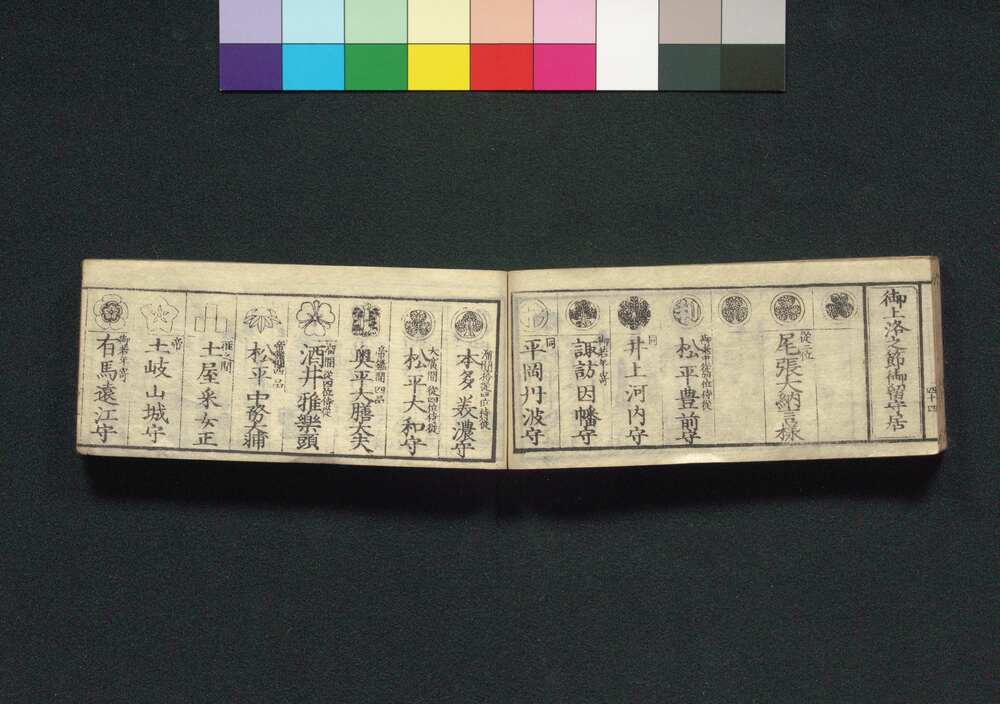 御上洛之節御留守居
四十四
従二位
尾張大納言様
御老中従四位侍従
松平豊前守
同
井上河内守
御若年寄
諏訪因幡守
同
平岡丹波守
溜間格従四位侍従
本多美濃守
大廣間 従四位侍従
松平大和守
帝鑑間 四品
奥平大膳大夫
溜間 従四位侍従
酒井雅樂頭
帝鑑間 四品
松平中務大輔
雁之間
土屋采女正
帝
土岐山城守
御若年寄
有馬遠江守